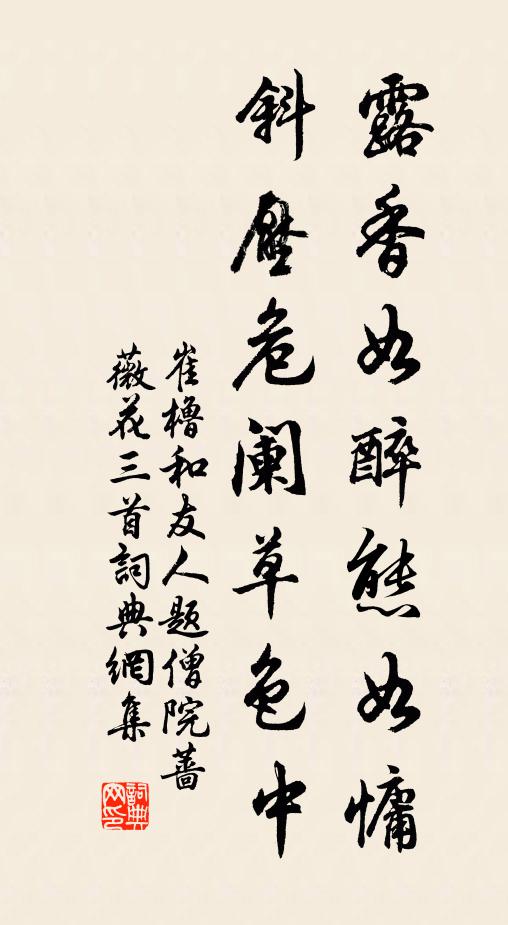 露香如醉態如慵
斜壓危闌草色中
崔櫓和友人題僧院薔
薇花三首詞典網集
詞典網印